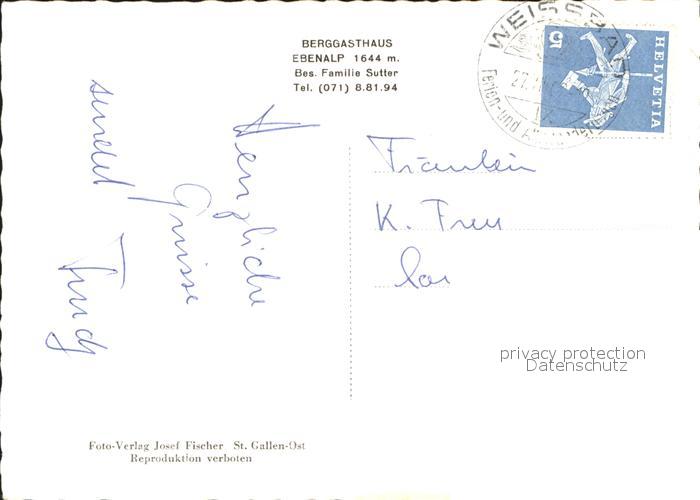 BERGGASTHAUS
EBENALP 1644 m.
Bes. Familie Sutter
Tel. (071) 8.81.94
WEISSBAD
Ferien-und
5
HELVETIA
Herzliche
Grüsse
sendet
Fräulein
K. Frei
privacy protection
Datenschutz
Foto-Verlag Josef Fischer St. Gallen-Ost
Reproduktion verboten